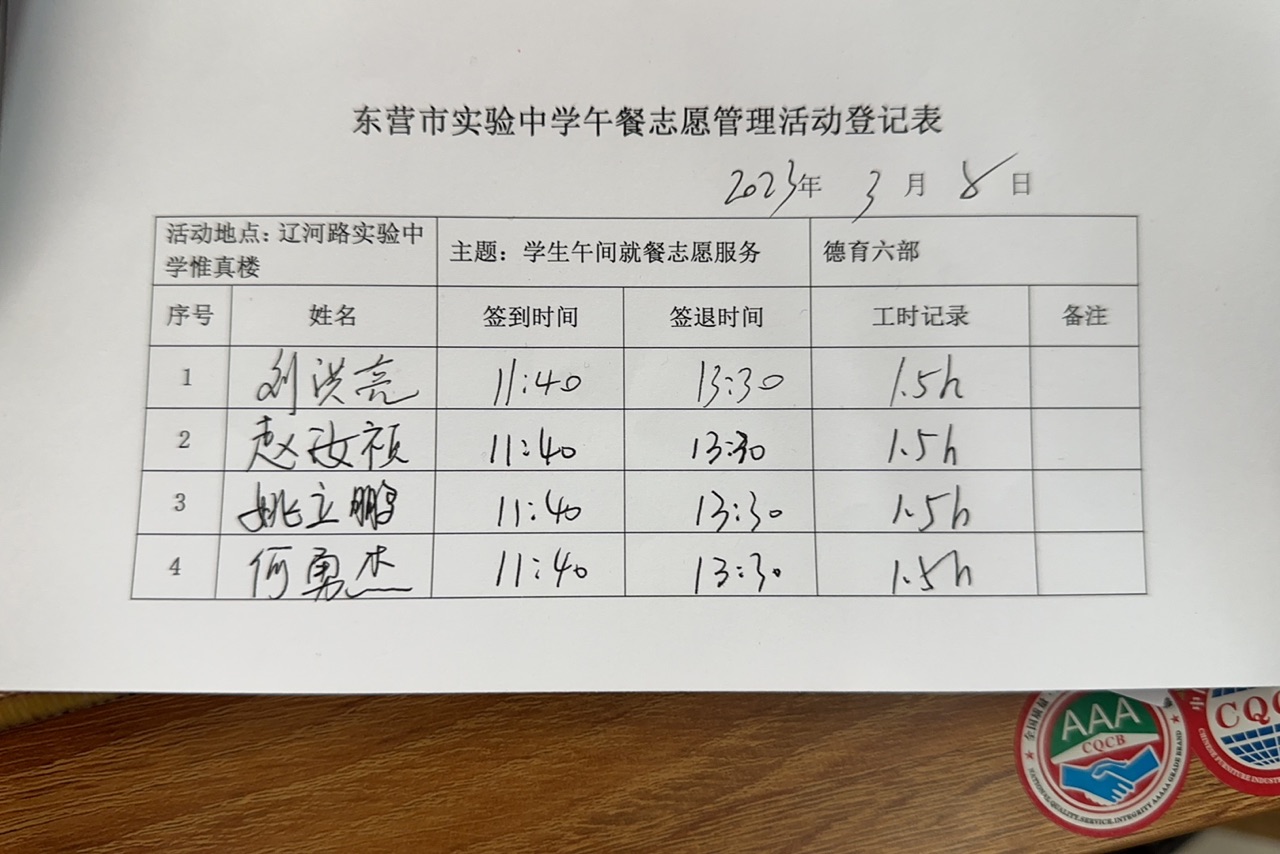 东营市实验中学午餐志愿管理活动登记表
2023年 3月 8日
活动地点：辽河路实验中学惟真楼 主题：学生午间就餐志愿服务 德育六部
序号 姓名 签到时间 签退时间 工时记录 备注
1 刘洪亮 11:40 13:30 1.5h
2 赵汝祯 11:40 13:30 1.5h
3 姚立鹏 11:40 13:30 1.5h
4 何勇杰 11:40 13:30 1.5h
全国质量
AAA
CQCB
NATIONAL.QUALITY.SERVICE.INTEGRITY.AAAAA GRADE BRAND
CQC
CHINESE FURNITURE INDUST